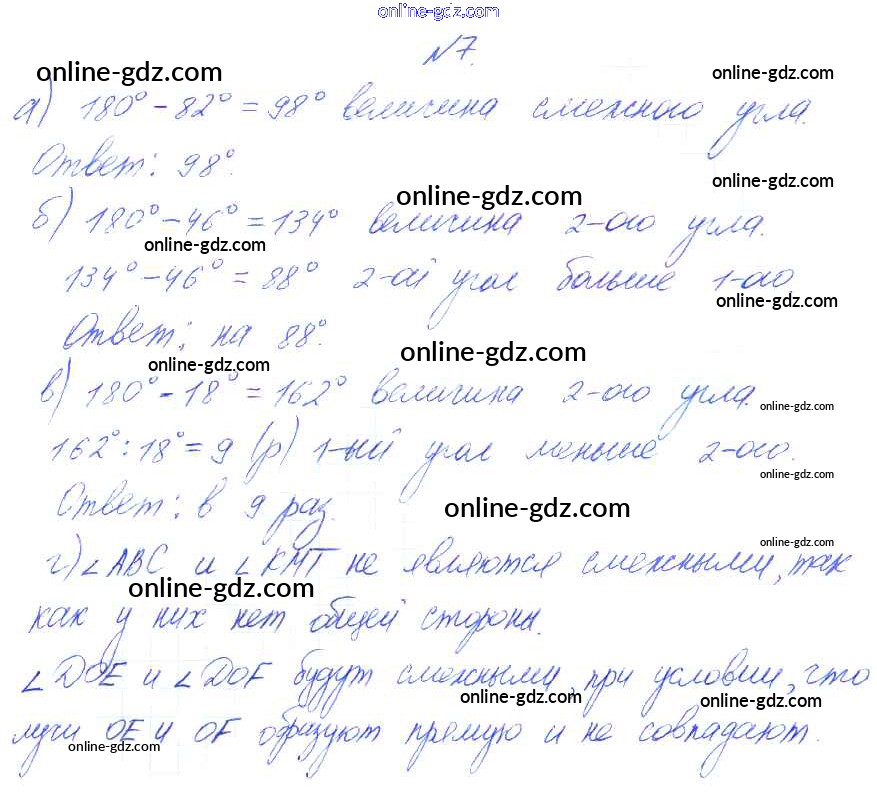 online-gdz.com
№7.
online-gdz.com
online-gdz.com
а) 180° - 82° = 98° величина смежного угла.
Ответ: 98°.
online-gdz.com
online-gdz.com
б) 180° - 46° = 134° величина 2-ого угла.
online-gdz.com
134° - 46° = 88° 2-ой угол больше 1-ого
online-gdz.com
Ответ: на 88°.
online-gdz.com
online-gdz.com
в) 180° - 18° = 162° величина 2-ого угла.
online-gdz.com
162° : 18° = 9 (р) 1-ый угол меньше 2-ого.
online-gdz.com
Ответ: в 9 раз.
online-gdz.com
online-gdz.com
г) ∠ABC и ∠KMT не являются смежными, так
online-gdz.com
как у них нет общей стороны.
∠DOE и ∠DOF будут смежными, при условии, что
online-gdz.com
online-gdz.com
лучи OE и OF образуют прямую и не совпадают.
online-gdz.com